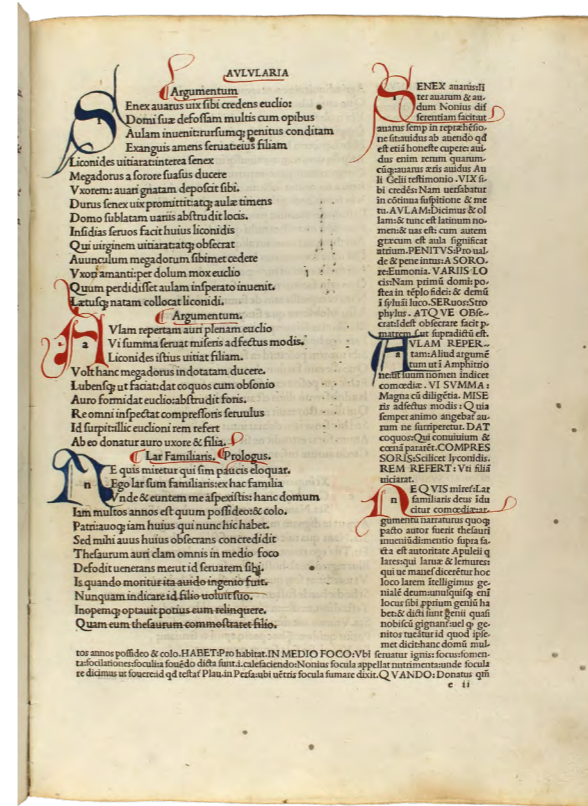 AVLVLARIA
Argumentum
SEnex auarus uix sibi credens euclio:
Domi suæ defossam multis cum opibus
Aulam inuenit:rursumq; penitus conditam
Exanguis amens seruat:eius filiam
Liconides uitiarat:interea senex
Megadorus a sorore suasus ducere
Vxorem: auari gnatam deposcit sibi.
Durus senex uix promittit:atq; aulæ timens
Domo sublatam uariis abstrudit locis.
Insidias seruos facit huius liconidis
Qui uirginem uitiarat:atq; obsecrat
Auunculum megadorum sibimet cedere
Vxori amanti:per dolum mox euclio
Quum perdidisset aulam insperato inuenit.
Lætusq; natam collocat liconidi.
Argumentum.
AVlam repertam auri plenam euclio
Vi summa seruat miseris adfectus modis.
Liconides istius uitiat filiam.
Volt hanc megadorus indotatam ducere.
Lubensq; ut faciat:dat coquos cum obsonio
Auro formidat euclio:abstrudit foris.
Re omni inspectat compressoris seruulus
Id surpit:illic euclioni rem refert
Ab eo donatur auro uxore & filia.
Lar Familiaris. Prologus.
NE quis miretur qui sim paucis eloquar.
Ego lar sum familiaris:ex hac familia
Vnde & euntem me aspexistis: hanc domum
Iam multos annos est quum possideo:& colo.
Patri:auoq; iam huius qui nunc hic habet.
Sed mihi auus huius obsecrans concredidit
Thesaurum auri clam omnis in medio foco
Defodit uenerans me:ut id seruarem sibi.
Is quando moritur ita auido ingenio fuit.
Nunquam indicare id filio uoluit suo.
Inopemq; optauit potius eum relinquere.
Quam eum thesaurum commostraret filio.
SENEX auarus:Iī
ter auarum & au-
dum Nonius dif
ferentiam facit:ut
auarus semp in repræhēsio-
ne sit:auidus ab auendo qđ
est etiā honeste cupere: aui-
dus enim rerum quarum-
cūq;:auarus æris auidus Au
li Gelii testimonio. VIX si-
bi credēs: Nam uersabatur
in cōtinua suspitione & me
tu. AVLAM:Dicimus & ol
lam:& tunc est latinum no-
men:& uas est: cum autem
græcum est aula significat
atrium. PENITVS:Pro ual-
de & pene intus: A SORO-
re:Eumonia. VARIIS LO
cis:Nam primū domi: po-
stea in tēplo fidei: & demū
i syluāi luco. SERuos:Stro
phylus. ATQVE OBse-
crat:Idest obsecrare facit p-
matrem. Vt supradictū est.
AVLAM REPER-
tam: Aliud argumē
tum ut i Amphitrio
ne:ut suum nomen indicet
comœdiæ. VI SVMMA:
Magna cū diligētia. MISE
ris adfectus modis: Quia
semper animo angebat au-
rum ne surriperetur. DAT
coquos:Qui conuiuium &
cœnā pararēt. COMPRES
SORIS:Scilicet lyconidis.
REM REFERT: Vti filiā
uiciarat.
NE QVIS miref:Lar
familiaris deus idu
citur comœdiæ:ar-
gumentū narraturus quoq;
pacto autor fuerit thesauri
inueniūdi:mentio supra fa-
cta est autoritate Apuleii q
lares:qui laruæ & lemures:
qui ue manes dicerētur hoc
loco larem îtelligimus ge-
nialē deum:unusquisq; enī
locus sibi pprium geniū ha
bet:& dicti sunt genii quasi
nobiscū gignant:uel q ge-
nitos tueātur id quod ipse-
met dicit:hanc domū mul-
tos annos possideo & colo. HABET:Pro habitat. IN MEDIO FOCO:Vbi seruatur ignis: focus:fomen-
ta:focilationes:focula:a fouēdo dicta sunt.i.calefaciendo:Nonius focula appellat nutrimenta:unde focula
re dicimus ut fouere:id qđ testaf Plau.in Persa:ubi uētris focula fumare dixit. QVANDO: Donatus qm̄
e ii